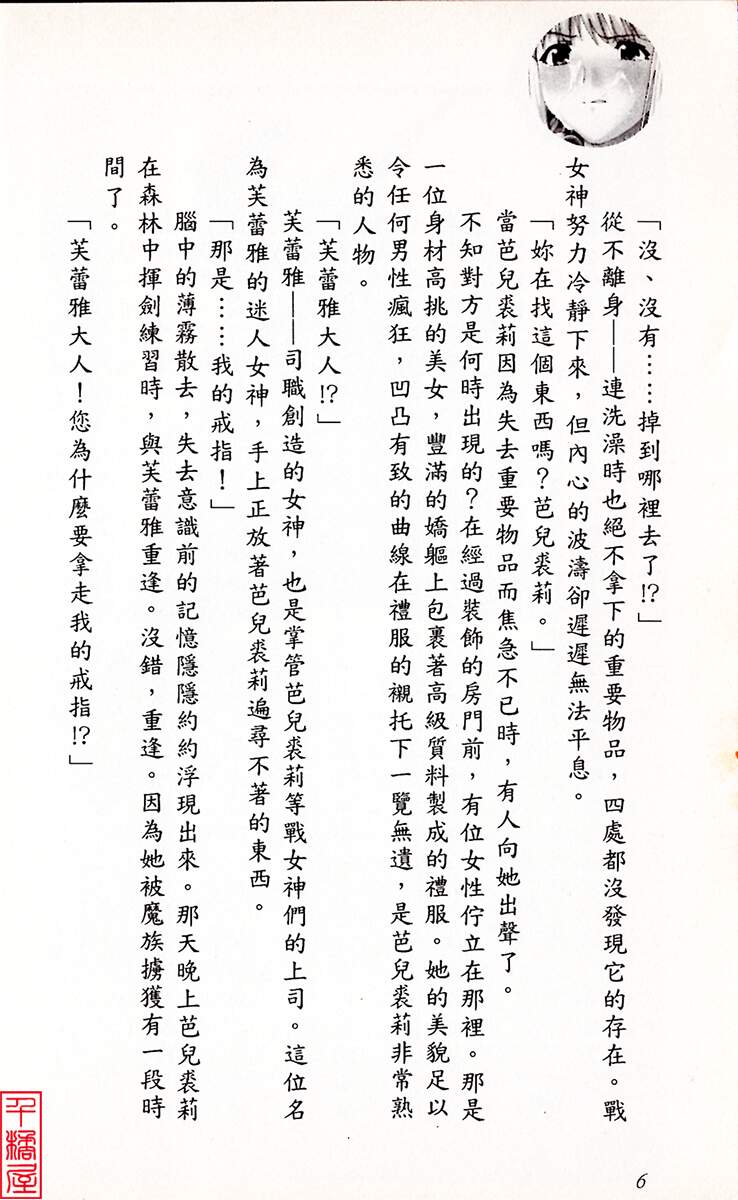 「沒、沒有……掉到哪裡去了!?」
從不離身——連洗澡時也絕不拿下的重要物品，四處都沒發現它的存在。戰
女神努力冷靜下來，但內心的波濤卻遲遲無法平息。
「妳在找這個東西嗎？芭兒裘莉。」
當芭兒裘莉因為失去重要物品而焦急不已時，有人向她出聲了。
不知對方是何時出現的？在經過裝飾的房門前，有位女性佇立在那裡。那是
一位身材高挑的美女，豐滿的嬌軀上包裹著高級質料製成的禮服。她的美貌足以
令任何男性瘋狂，凹凸有致的曲線在禮服的襯托下一覽無遺，是芭兒裘莉非常熟
悉的人物。
「芙蕾雅大人!?」
芙蕾雅——司職創造的女神，也是掌管芭兒裘莉等戰女神們的上司。這位名
為芙蕾雅的迷人女神，手上正放著芭兒裘莉遍尋不著的東西。
「那是……我的戒指！」
腦中的薄霧散去，失去意識前的記憶隱隱約約浮現出來。那天晚上芭兒裘莉
在森林中揮劍練習時，與芙蕾雅重逢。沒錯，重逢。因為她被魔族擄獲有一段時
間了。
「芙蕾雅大人！您為什麼要拿走我的戒指!?」
6
千橘屋